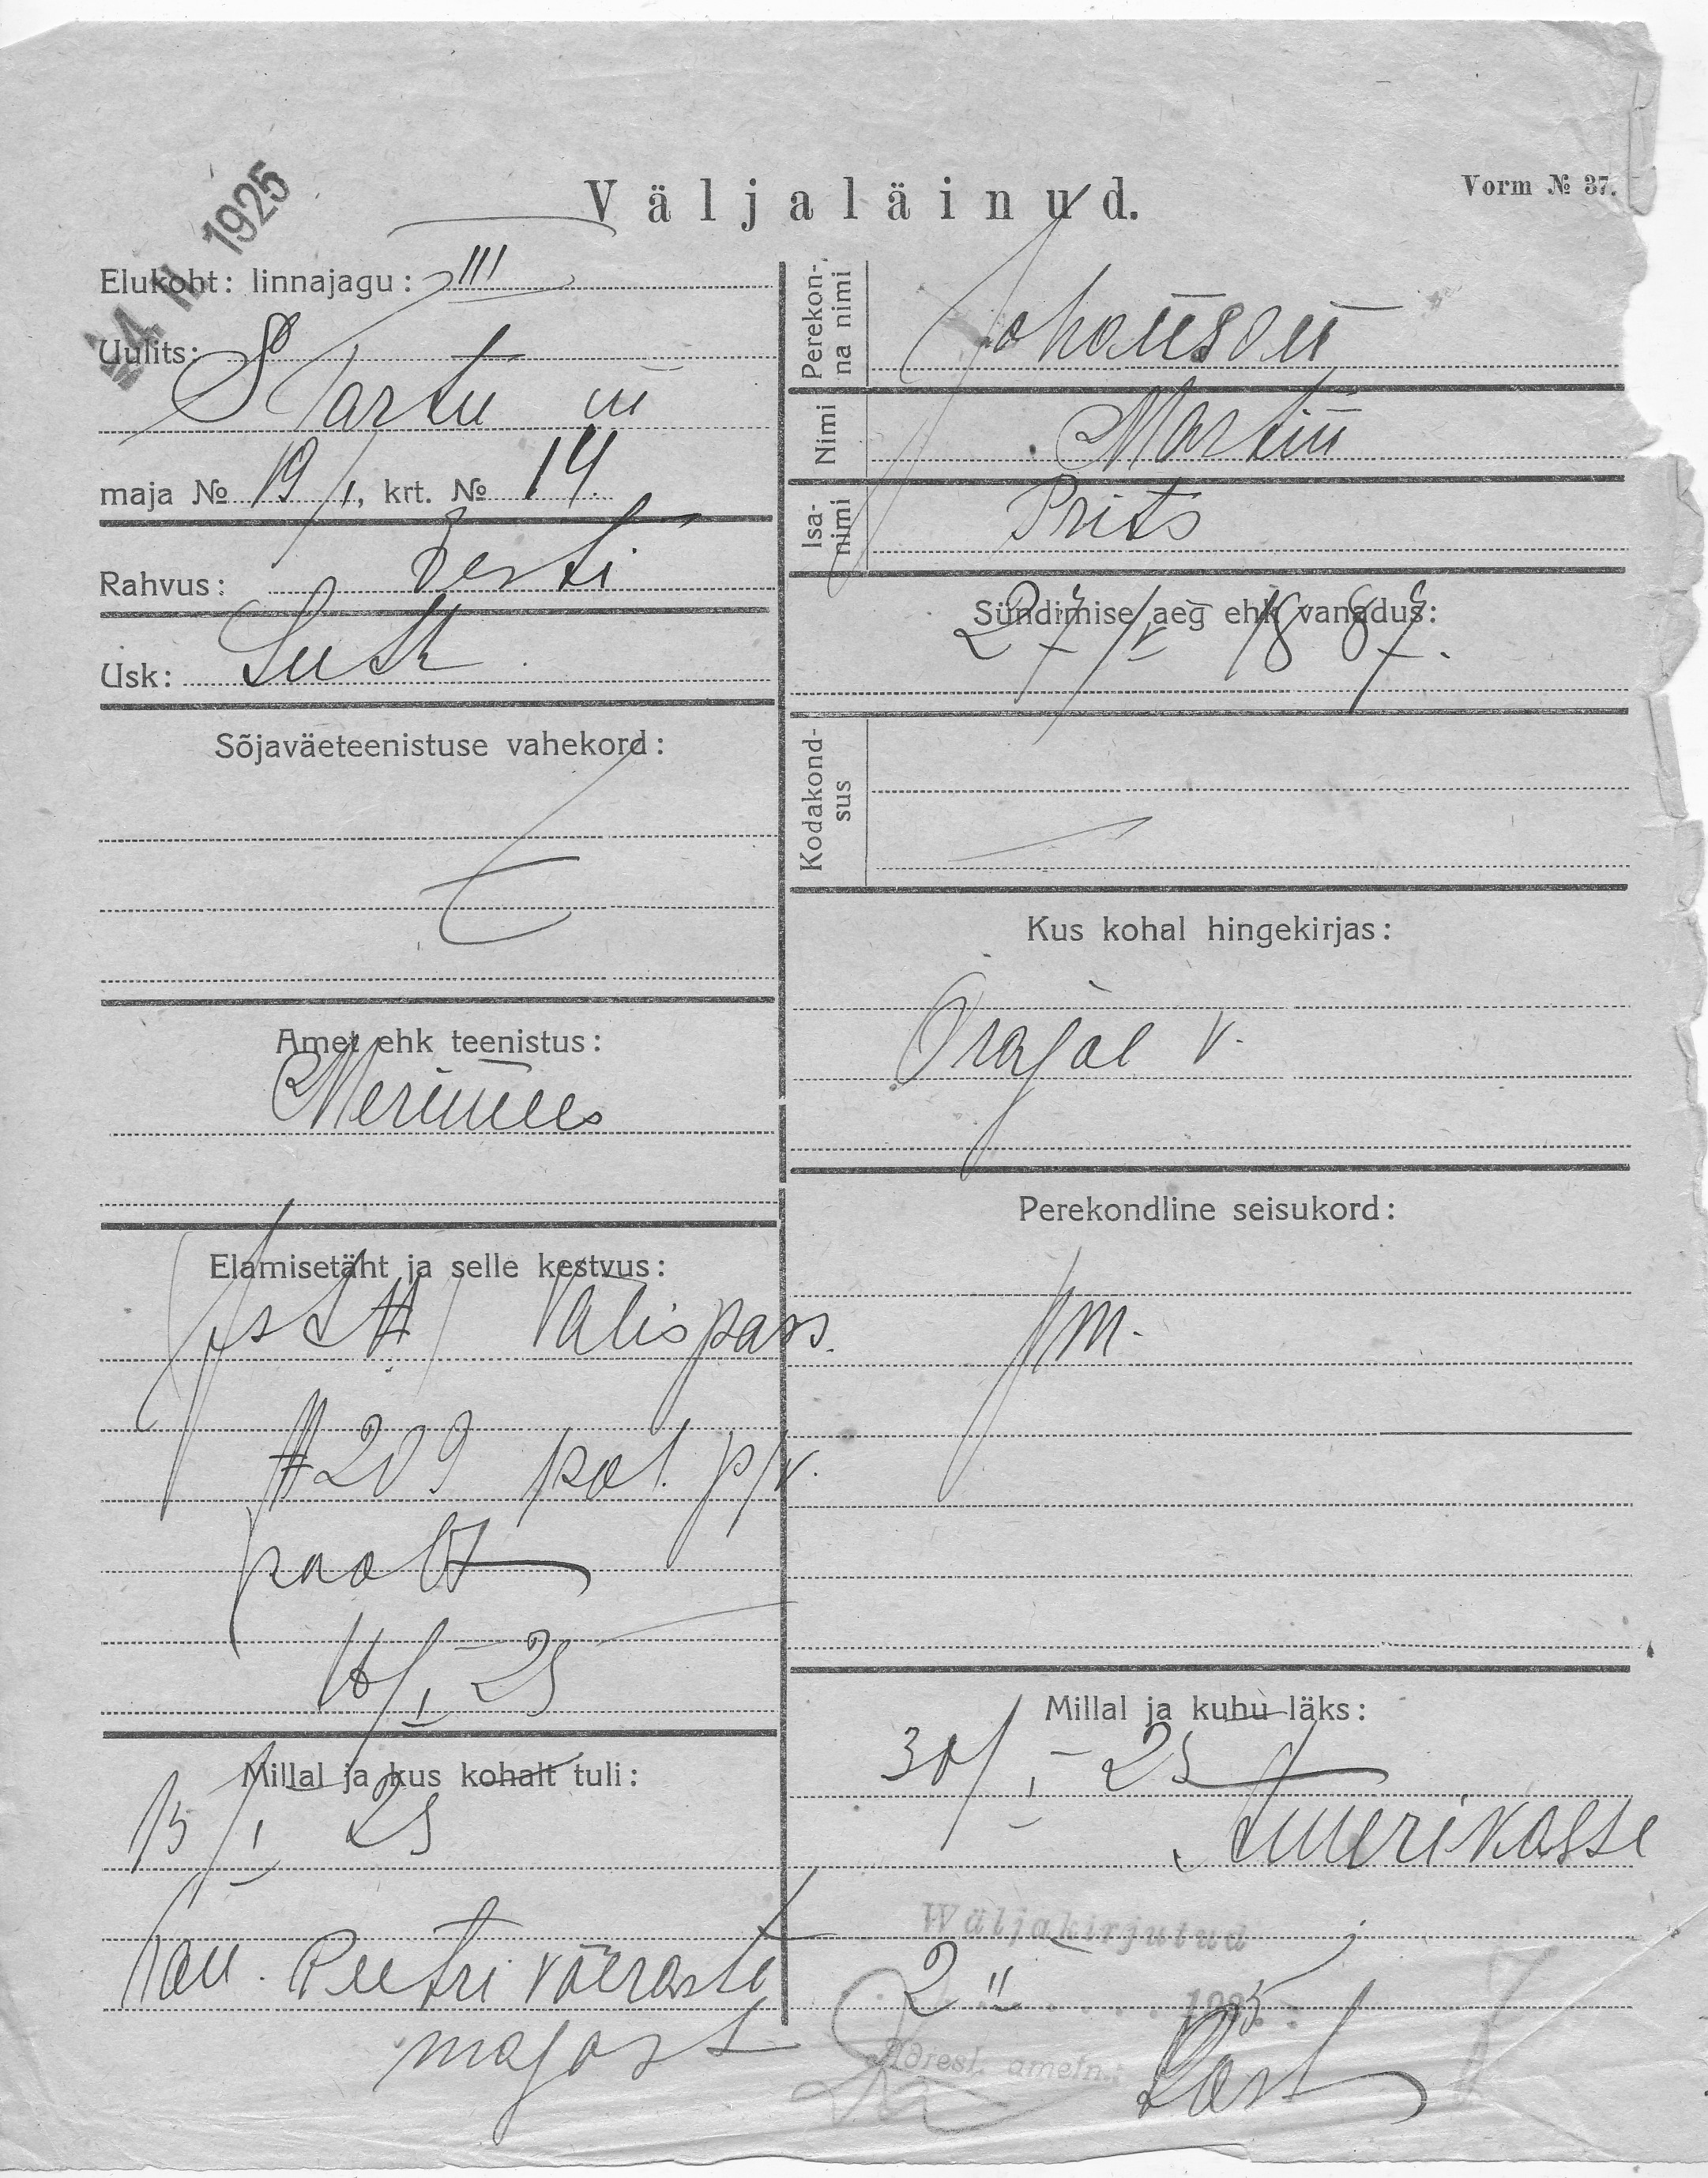 Väljaläinud.
Vorm № 37.
1925
Elukoht: linnajagu: III
Uulits:
S Tartu m
maja № 19/1, krt. № 14.
Rahvus: Eesti
Usk: Luth
Sõjaväeteenistuse vahekord:
Amet ehk teenistus:
Meremees
Elamisetäht ja selle kestvus:
Välispass.
#209 pol. p/v.
poolt
16/I-25
Millal ja kus kohalt tuli:
15/I 25
Peetri võeraste
majast
Perekonna nimi
Johanson
Nimi
Martin
Isanimi
Prits
Sündimise aeg ehk vanadus:
27/V 1887.
Kodakondsus
Kus kohal hingekirjas:
Orajõe v.
Perekondline seisukord:
Millal ja kuhu läks:
30/I-25
Ameerikasse
Wäljakirjutud
2 II 1925
Adresl. ametn.: